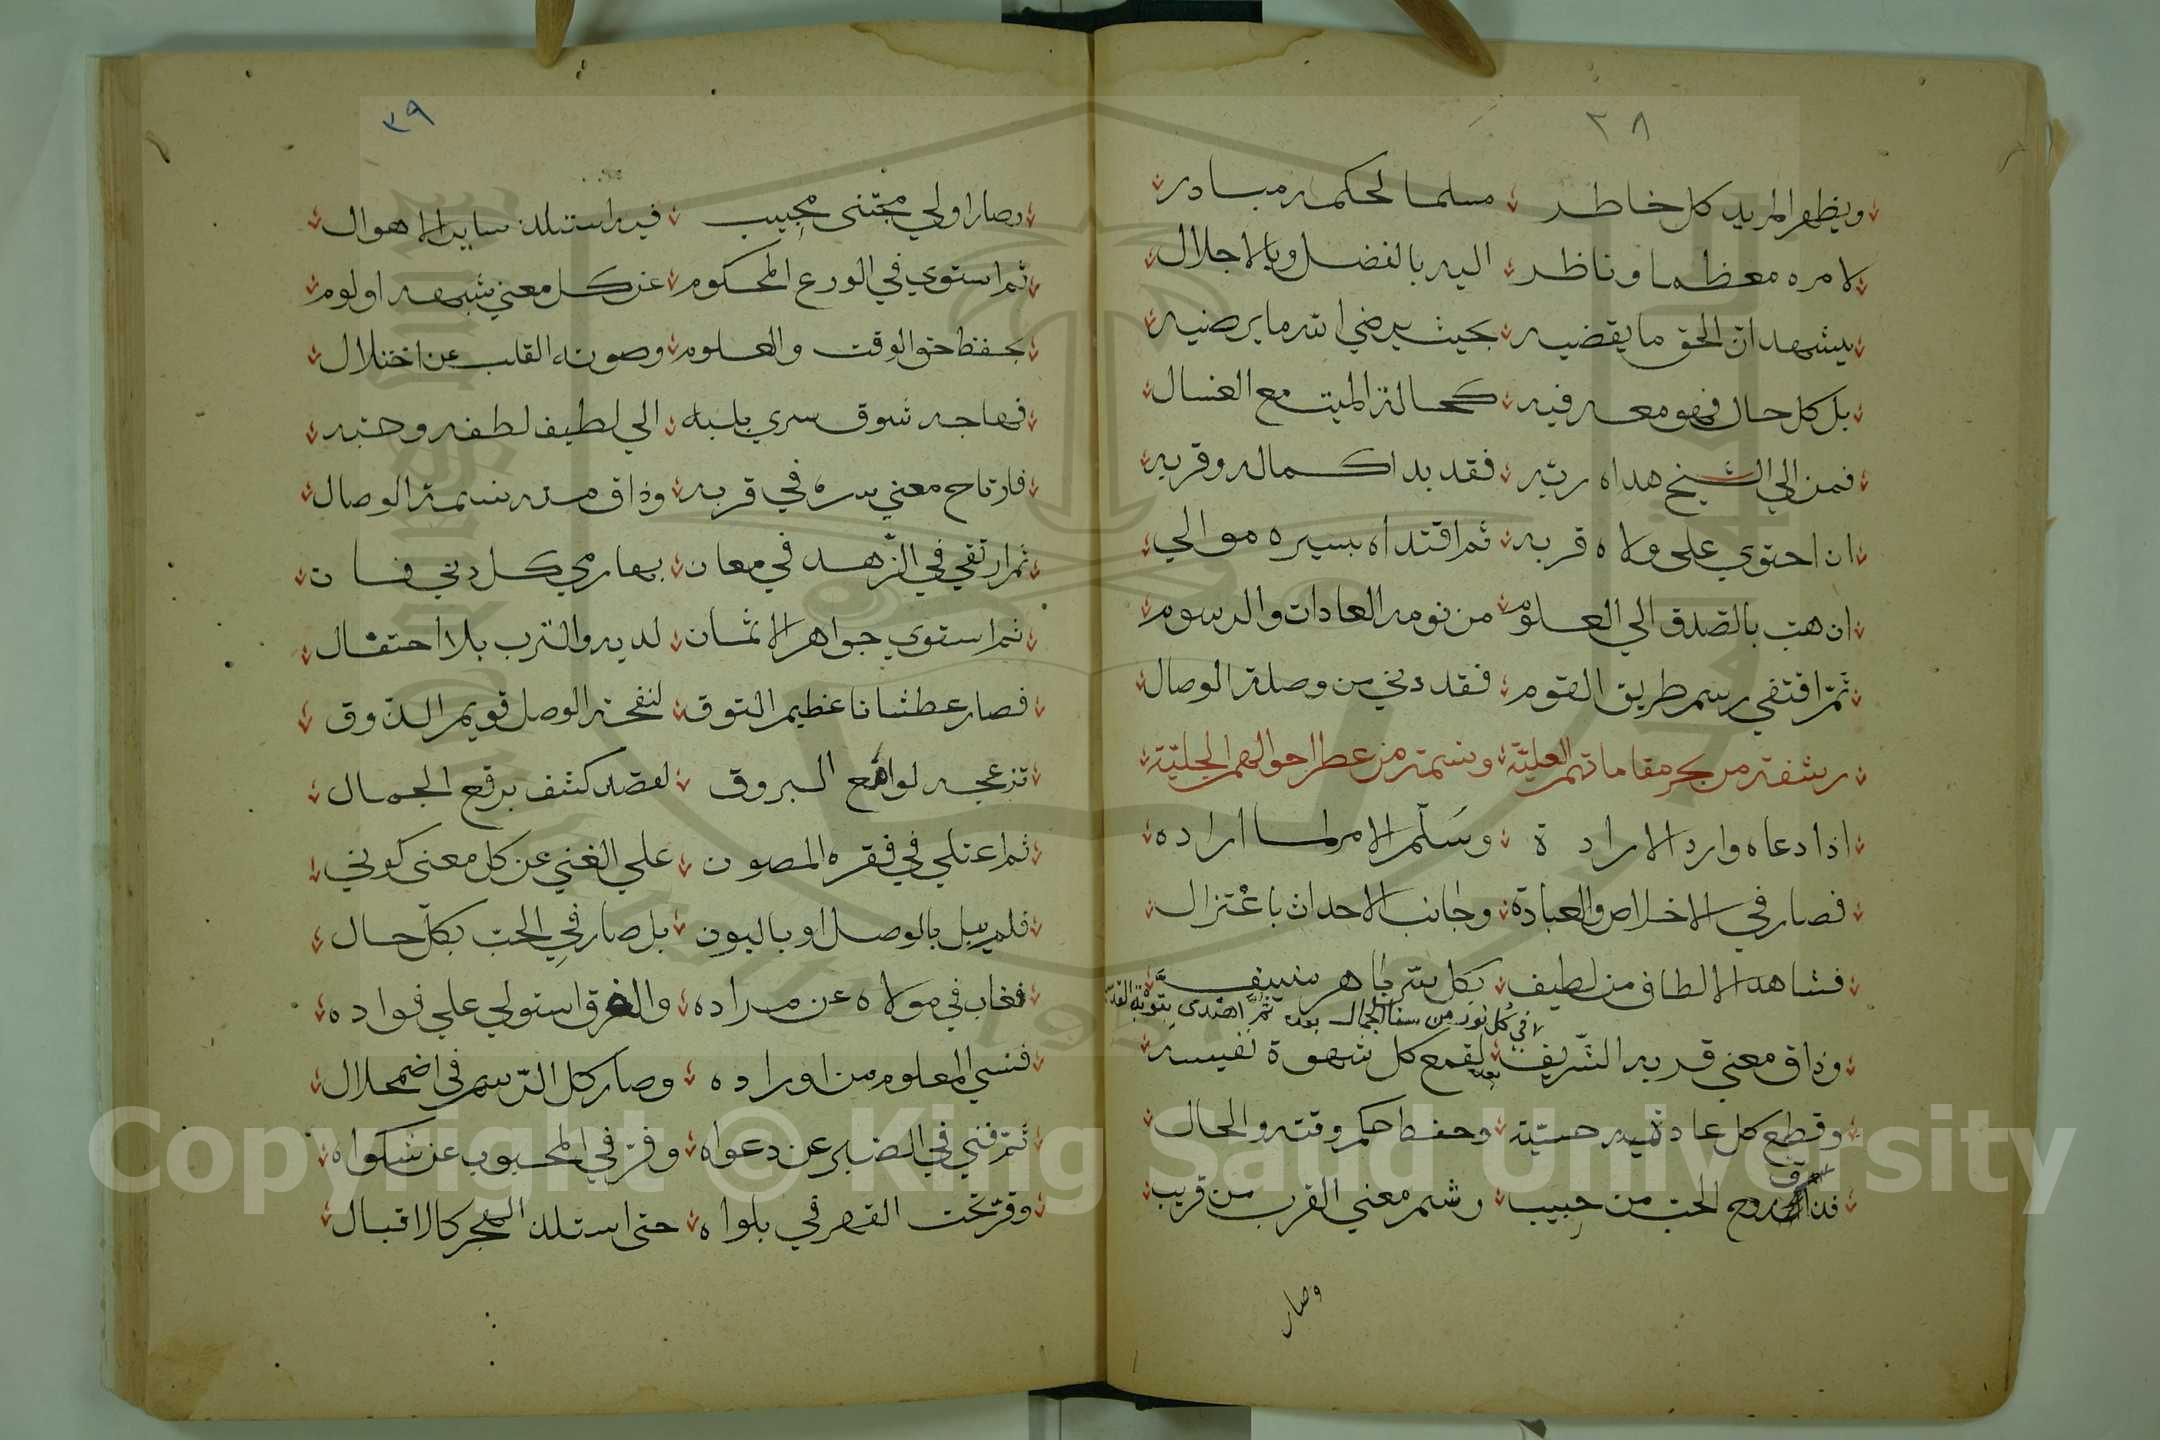 ٣٨
ويظهر المريد كل خاطر مسلما لحكمه مبادر
لامره معظما وناظر اليه بالفضل وبالاجلال
يشهد ان الحق ما يقضيه بحيث يرضي الله ما يرضيه
بل كل حال فهو معه فيه كحالة الميت مع الغسال
فمن الي الشيخ هداه ربه فقد بدا كماله وقربه
ان احتوي على ولاه قربه ثم اقتداه بسيره موالي
ان هب بالصدق الي العلوم من نومه العادات والرسوم
ثم اقتفي رسم طريق القوم فقد دني من وصلة الوصال
رشفة من بحر مقاماتهم العلية ونسمة من عطر احوالهم الجلية
اذا دعاه وارد الارادة وسلم الامر لما اراده
فصار في الاخلاص والعبادة وجانب الاحداث باعتزال
فشاهد الالطاف من لطيف بكل سر باهر منيف
وذاق معني قربه الشريف في كل نور من سنا الجمال
ثم اهتدى بتوبة
لقمع كل شهوة نفيسه
وقطع كل عادة حسية وحفظ حكم وقته والحال
فذاق روح الحب من حبيب وشم معني القرب من قريب
وصار
٣٩
وصار اولي مجتنى مجيب فيه استلذ ساير الاهوال
ثم استوي في الورع المحكوم عن كل معني شبهه او لوم
بحفظ حق الوقت والعلوم وصونه القلب عن اختلال
فهاجه شوق سري بلبه الي لطيف لطفه وحبه
فارتاح معني سره في قربه وذاق منه نسمة الوصال
ثم ارتقي في الزهد في معان بها رمي كل دني فان
ثم استوي جواهر الاثمان لديه والترب بلا احتفال
فصار عطشانا عظيم التوق لنفحة الوصل قويم الذوق
تزعجه لوامع البروق لقصد كشف برقع الجمال
ثم اعتلي في فقره المصون علي الغني عن كل معنى كوني
فلم يبل بالوصل او بالبون بل صار في الحب بكل حال
فغاب في مولاه عن مراده والغرق استولي علي فواده
فنسي المعلوم من اوراده وصار كل الرسم في اضمحلال
ثم فني في الصبر عن دعواه وفر في المحبوب عن شكواه
وقر تحت القهر في بلواه حتى استلذ الهجر كالاقبال
Copyright © King Saud University